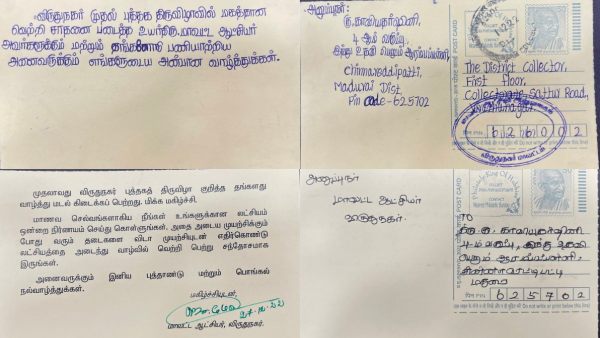 விருதுநகர் முதல் புத்தக திருவிழாவில் மகத்தான
வெற்றி சாதனை படைத்த உயர்திரு.மாவட்ட ஆட்சியர்
அவர்களுக்கும் மற்றும் தங்களோடு பணியாற்றிய
அனைவருக்கும் எங்களுடைய அன்பான வாழ்த்துக்கள்.
அனுப்புனர்:
கு.காவியதர்ஷினி,
4 ஆம் வகுப்பு,
இந்து உதவி பெறும் ஆரம்பப்பள்ளி,
chinnareddipatti,
Madurai Dist.
Pin code-625702
POST CARD
The District Collector,
First Floor,
Collectorate, Sattur Road,
Virudhunagar.
விருதுநகர் மாவட்டம்
பின PIN 626002
முதலாவது விருதுநகர் புத்தகத் திருவிழா குறித்த தங்களது
வாழ்த்து மடல் கிடைக்கப் பெற்றது. மிக்க மகிழ்ச்சி.
மாணவ செல்வங்களாகிய நீங்கள் உங்களுக்கான லட்சியம்
ஒன்றை நிர்ணயம் செய்து கொள்ளுங்கள். அதை அடைய முயற்சிக்கும்
போது வரும் தடைகளை விடா முயற்சியுடன் எதிர்கொண்டு
லட்சியத்தை அடைந்து வாழ்வில் வெற்றி பெற்று சந்தோசமாக
இருங்கள்.
அனைவருக்கும் இனிய புத்தாண்டு மற்றும் பொங்கல்
நல்வாழ்த்துக்கள்.
மகிழ்ச்சியுடன்,
மாவட்ட ஆட்சியர், விருதுநகர்.
அனுப்புநர்
மாவட்ட ஆட்சியர்
விருதுநகர்.
POST CARD
TO
4-ம் வகுப்பு, இந்து உதவி
பெறும் ஆரம்பப்பள்ளி,
மதுரை
PIN 625702